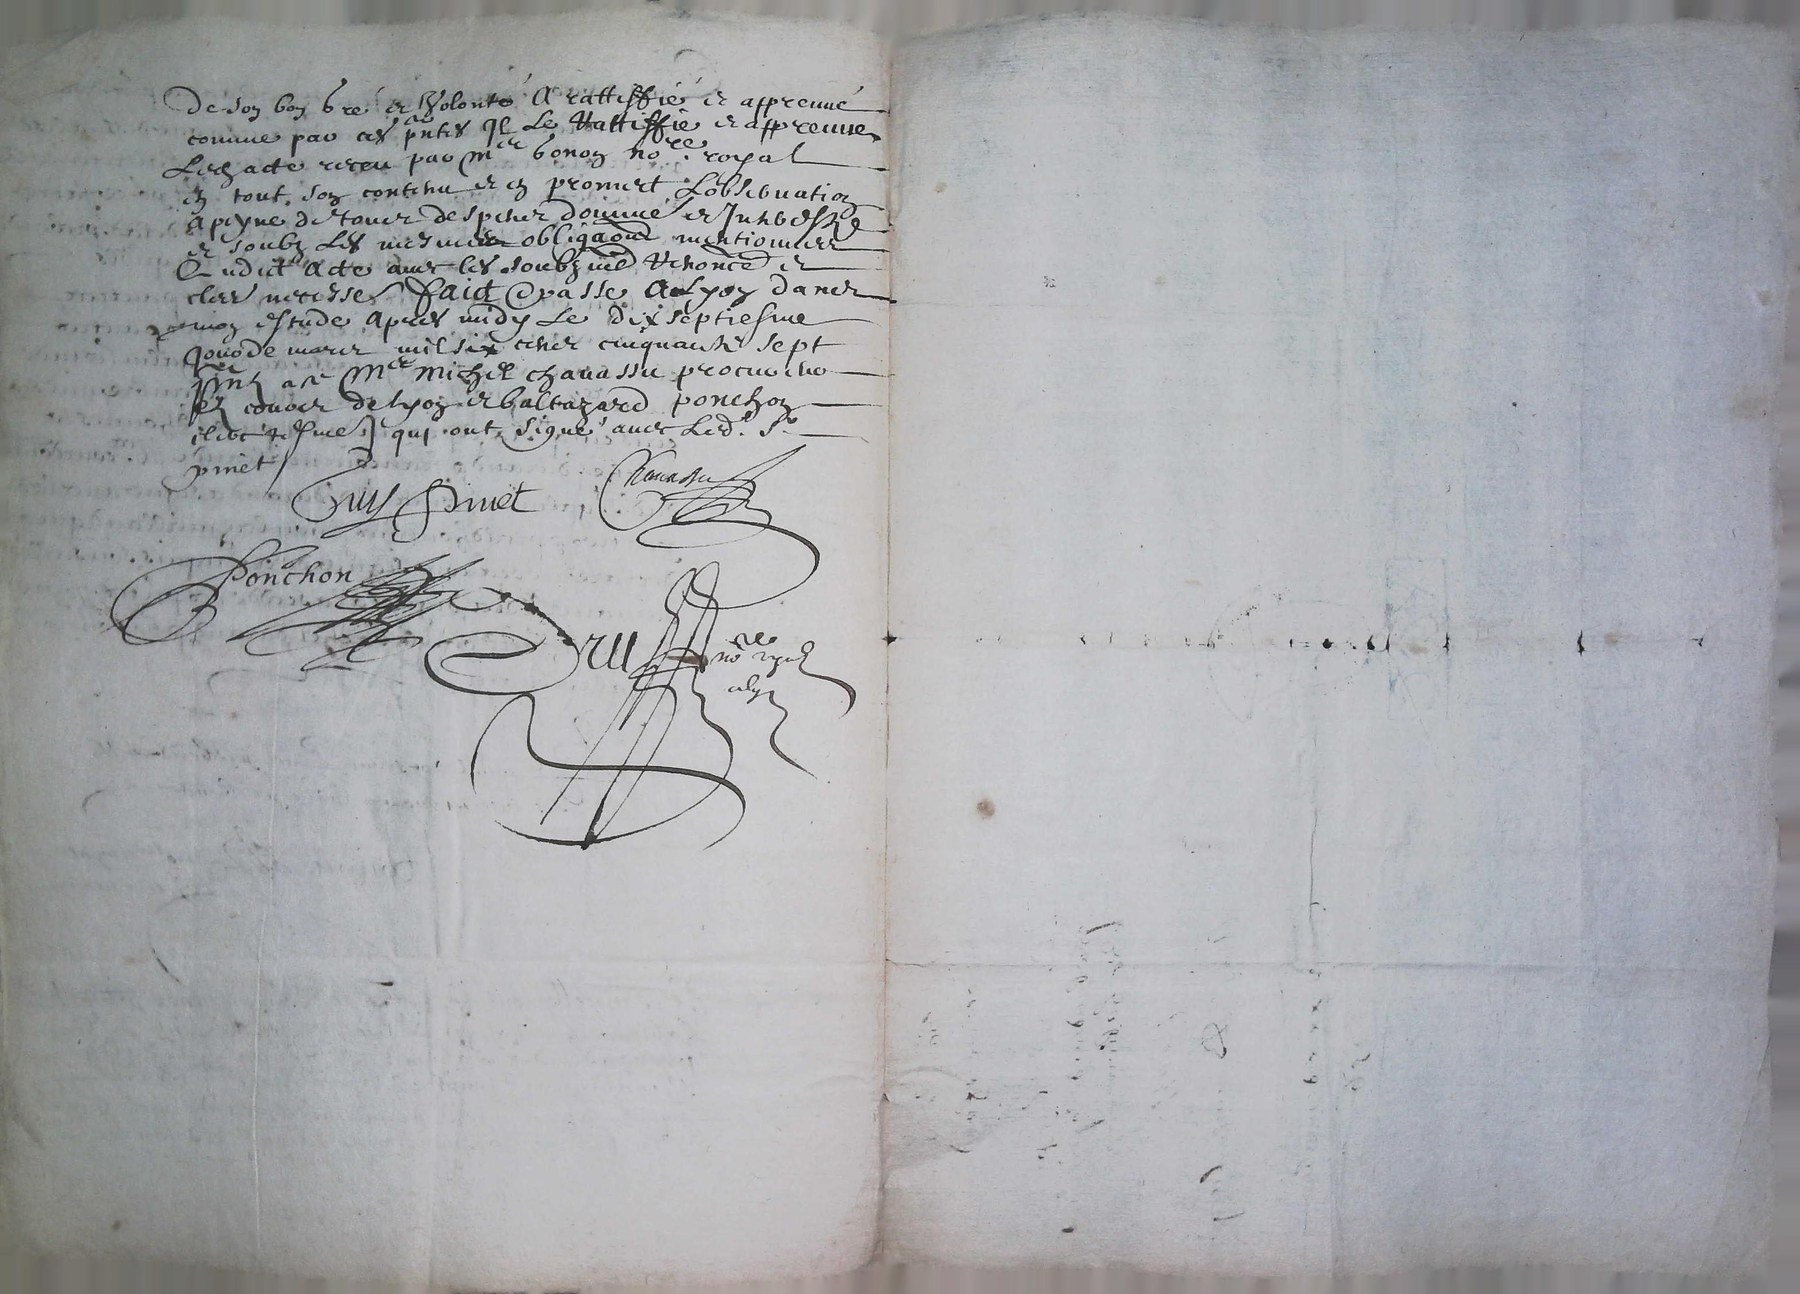 De son bon gre et Volonté A rattiffié et appreuué
comme par ces pntes Il Le Rattiffie et appreuue
Led acte receu par Mre bonon nore royal
en tout son contenu et en promect Lobseruation
a peyne de tous despens dommé et Inthestz
et soubz Les mesmes obligaons mentionnees
Audit Acte auec les soubzmis Renonce et
cles necessel faict & passe A Lyon dans
mon estude Apres midy Le dix septiesme
Jour de mars mil six cens cinquante sept
pnt a ce Mre Michel chauassu procur
es cours de Lyon et baltazard ponchon
qui ont signe auec Led. Sr
pinet
Guy Pinet
Chauassu
Ponchon
Dru
nore royal